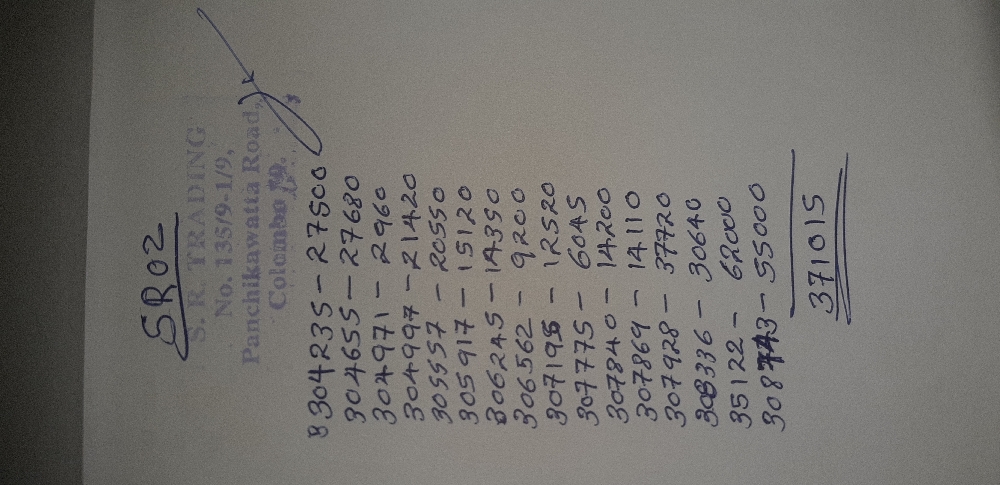 SR02
S. R. TRADING
No. 135/9-1/9,
Panchikawatta Road,
Colombo
304235 - 27500
304655 - 27680
304971 - 2960
304997 - 21420
305557 - 20550
305917 - 15120
306245 - 14350
306562 - 9200
307195 - 12520
307775 - 6045
307840 - 14200
307869 - 14110
307928 - 37720
308336 - 30640
35122 - 62000
308743 - 55000
371015